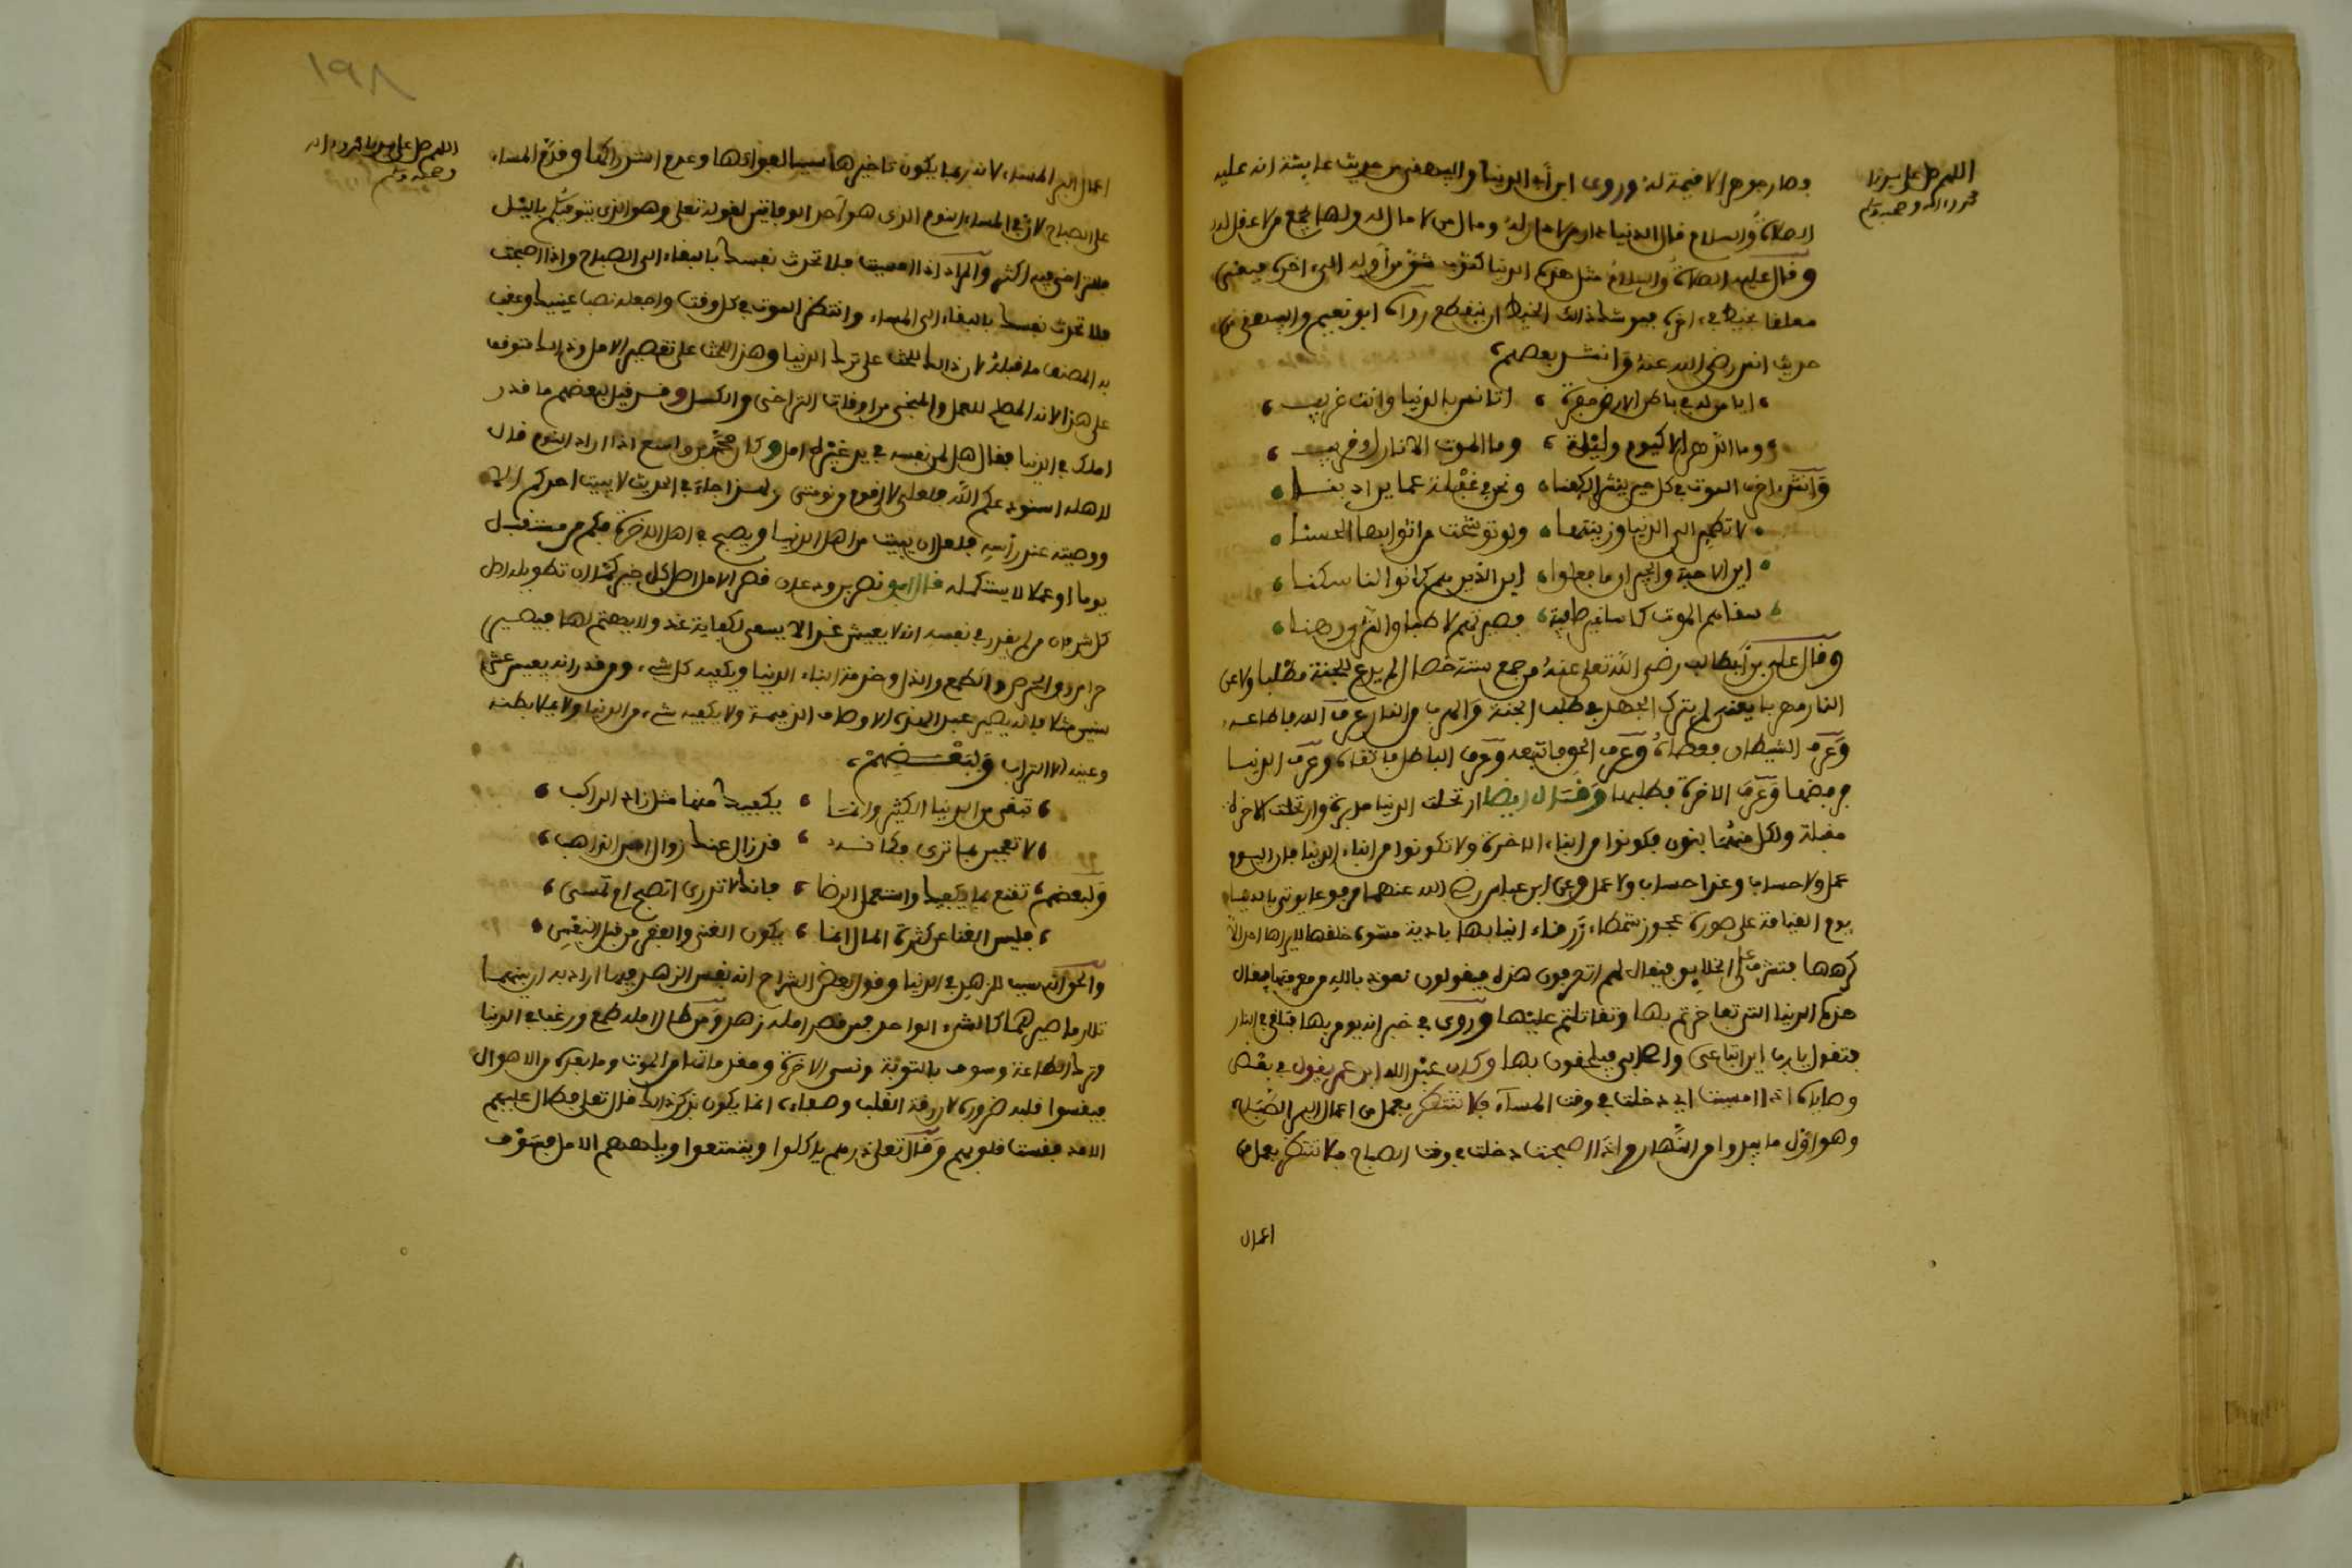 اللهم صل على سيدنا
محمد وءاله وصحبه وسلم
وصار جوهرا لا قيمة له وروى ابن أبي الدنيا والبيهقي من حديث عايشة انه عليه
الصلاة والسلام قال الدنيا دار من لا دار له ومال من لا مال له ولها يجمع من لا عقل له
وقال عليه الصلاة والسلام مثل هذه الدنيا كثوب شق من أوله الى اخره فبقي
معلقا بخيط في اخره فيوشك ذالك الخيط ان ينقطع رواه ابو نعيم والبيهقي من
حديث انس رضي الله عنه وانشد بعضهم
ايا من له في باطن الارض حفرة اتانس بالدنيا وانت غريب
وما الدهر الا كيوم وليلة وما الموت الا نازل وقريب
وانشد اخر الموت في كل حين ينشر الكفنا ونحن في غفلة عما يراد بنا
لا تطمين الى الدنيا وزينتها ولو توشحت من اثوابها الحسنا
اين الاحبة والجيران ما فعلوا اين الذين هم كانوا لنا سكنا
سقاهم الموت كاسا غير صافية فصيرتهم لاطباق الثرى رهنا
وقال علي بن أبي طالب رضي الله تعالى عنه من جمع ستة خصال لم يدع للجنة مطلبا ولا عن
النار مهربا يعني لم يترك الجهد في طلب الجنة والهرب من النار عرف الله فاطاعه
وعرف الشيطان فعصاه وعرف الحق فاتبعه وعرف الباطل فاتقاه وعرف الدنيا
فرفضها وعرف الاخرة فطلبها وقال ايضا ارتحلت الدنيا مدبرة وارتحلت الاخرة
مقبلة ولكل منهما بنون فكونوا من ابناء الاخرة ولا تكونوا من ابناء الدنيا فان اليوم
عمل ولا حساب وغدا حساب ولا عمل وعن ابن عباس رضي الله عنهما مرفوعا يوتى بالدنيا
يوم القيامة على صورة عجوز شمطاء زرقاء انيابها بادية مشوه خلقها لا يراها احد الا
كرهها فتشرف على الخلايق فيقال لهم اتعرفون هذه فيقولون نعوذ بالله من معرفتها فيقال
هذه الدنيا التي تفاخرتم بها وتقاتلتم عليها وروي في خبر انه يومر بها فتلقى في النار
فتقول يا رب اين اتباعي واصحابي فيلحقون بها وكان عبد الله ابن عمر يقول في بعض
وصاياه اذا امسيت اي دخلت في وقت المساء فلا تنتظر بعمل من اعمال اليل الصباح
وهو اول ما يبدوا من النهار واذا اصبحت دخلت في وقت الصباح فلا تنتظر بعمل من
اعمال
١٩٨
اللهم صل على سيدنا محمد وءاله
وصحبه وسلم
اعمال اليوم المساء لانه ربما يكون تاخيرها سببا لفواتها وعدم استدراكها وقدم المساء
على الصباح لان في المساء النوم الذي هو احد الوفاتين لقوله تعلى وهو الذي يتوفيكم باليل
فالتراخي فيه اكثر والمراد اذا امسيت فلا تحدث نفسك بالبقاء الى الصباح واذا اصبحت
فلا تحدث نفسك بالبقاء الى المساء وانتظر الموت في كل وقت واجعله نصب عينيك وعقب
به المصنف ما قبله لان ذالك للحث على ترك الدنيا وهذا للحث على تقصير الامل وذالك متوقف
على هذا لانه المصلح للعمل والمنجي من افات التراخي والكسل وقد قيل لبعضهم ما قدر
املك في الدنيا فقال هل لمن نفسه في يد غيره امل وكان محمد بن واسع اذا اراد النوم قال
لاهله استودعكم الله فلعلي لا اقوم من نومتي ولهذا جاء في الحديث لا يبيت احدكم الا
ووصيته عند رأسه فلعله ان يبيت من اهل الدنيا ويصبح في اهل الاخرة فكم من مستقبل
يوما او عملا لا يستكمله قال ابو نصر بن ودعان قصر الامل اصل كل خير كما ان تطويله اصل
كل شر فان من لم يقدر في نفسه انه لا يعيش غدا لا يسعى لكفاية غد ولا يهتم لها فيصير
حرا من رق الحرص والطمع والذل وخدمة ابناء الدنيا ويكفيه كل شيء ومن قدر انه يعيش عشر
سنين مثلا فانه يصير عبد الهذه الاوصاف الذميمة ولا يكفيه شيء من الدنيا ولا يملا بطنه
وعينه الا التراب ولبعضهم
تبغي من الدنيا الكثير وانما يكفيك منها مثل زاد الراكب
لا تعجبن بما ترى فكانه قد زال عنك زوال امس الذاهب
ولبعضهم تقنع بما يكفيك واستعمل الرضا فانك لا تدري اتصبح ام تمسي
فليس الغنا عن كثرة المال انما يكون الغنى والفقر من قبل النفس
والحق انه سبب للزهد في الدنيا وقول بعض الشراح انه نفس الزهد فيها اراد به ان بينهما
تلازما صيرهما كالشيء الواحد فمن قصر امله زهد ومن طال امله طمع ورغب في الدنيا
وترك الطاعة وسوف بالتوبة ونسي الاخرة ومقدماتها من الموت وما بعده من الاهوال
فيقسوا قلبه ضرورة لان رقة القلب وصفاءه انما يكون بذكر ذالك قال تعلى فطال عليهم
الامد فقست قلوبهم وقال تعلى ذرهم ياكلوا ويتمتعوا ويلههم الامل فسوف